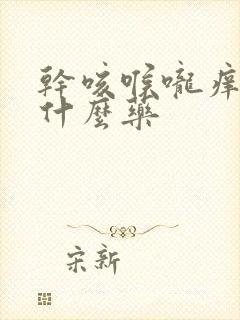 幹咳喉嚨癢
什麼藥
宋新